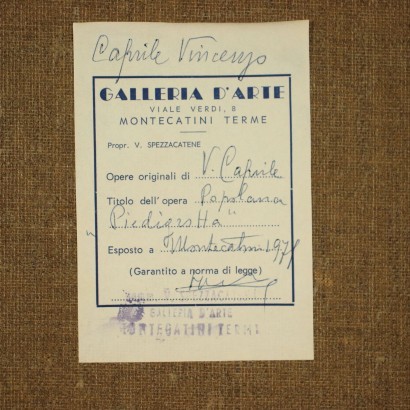 Caprile Vincenzo
GALLERIA D'ARTE
VIALE VERDI, 8
MONTECATINI TERME
Propr. V. SPEZZACATENE
Opere originali di V. Caprile
Titolo dell'opera Popolana
"Piedigrotta"
Esposto a Montecatini 197
(Garantito a norma di legge)
GALLERIA D'ARTE
MONTECATINI TERME